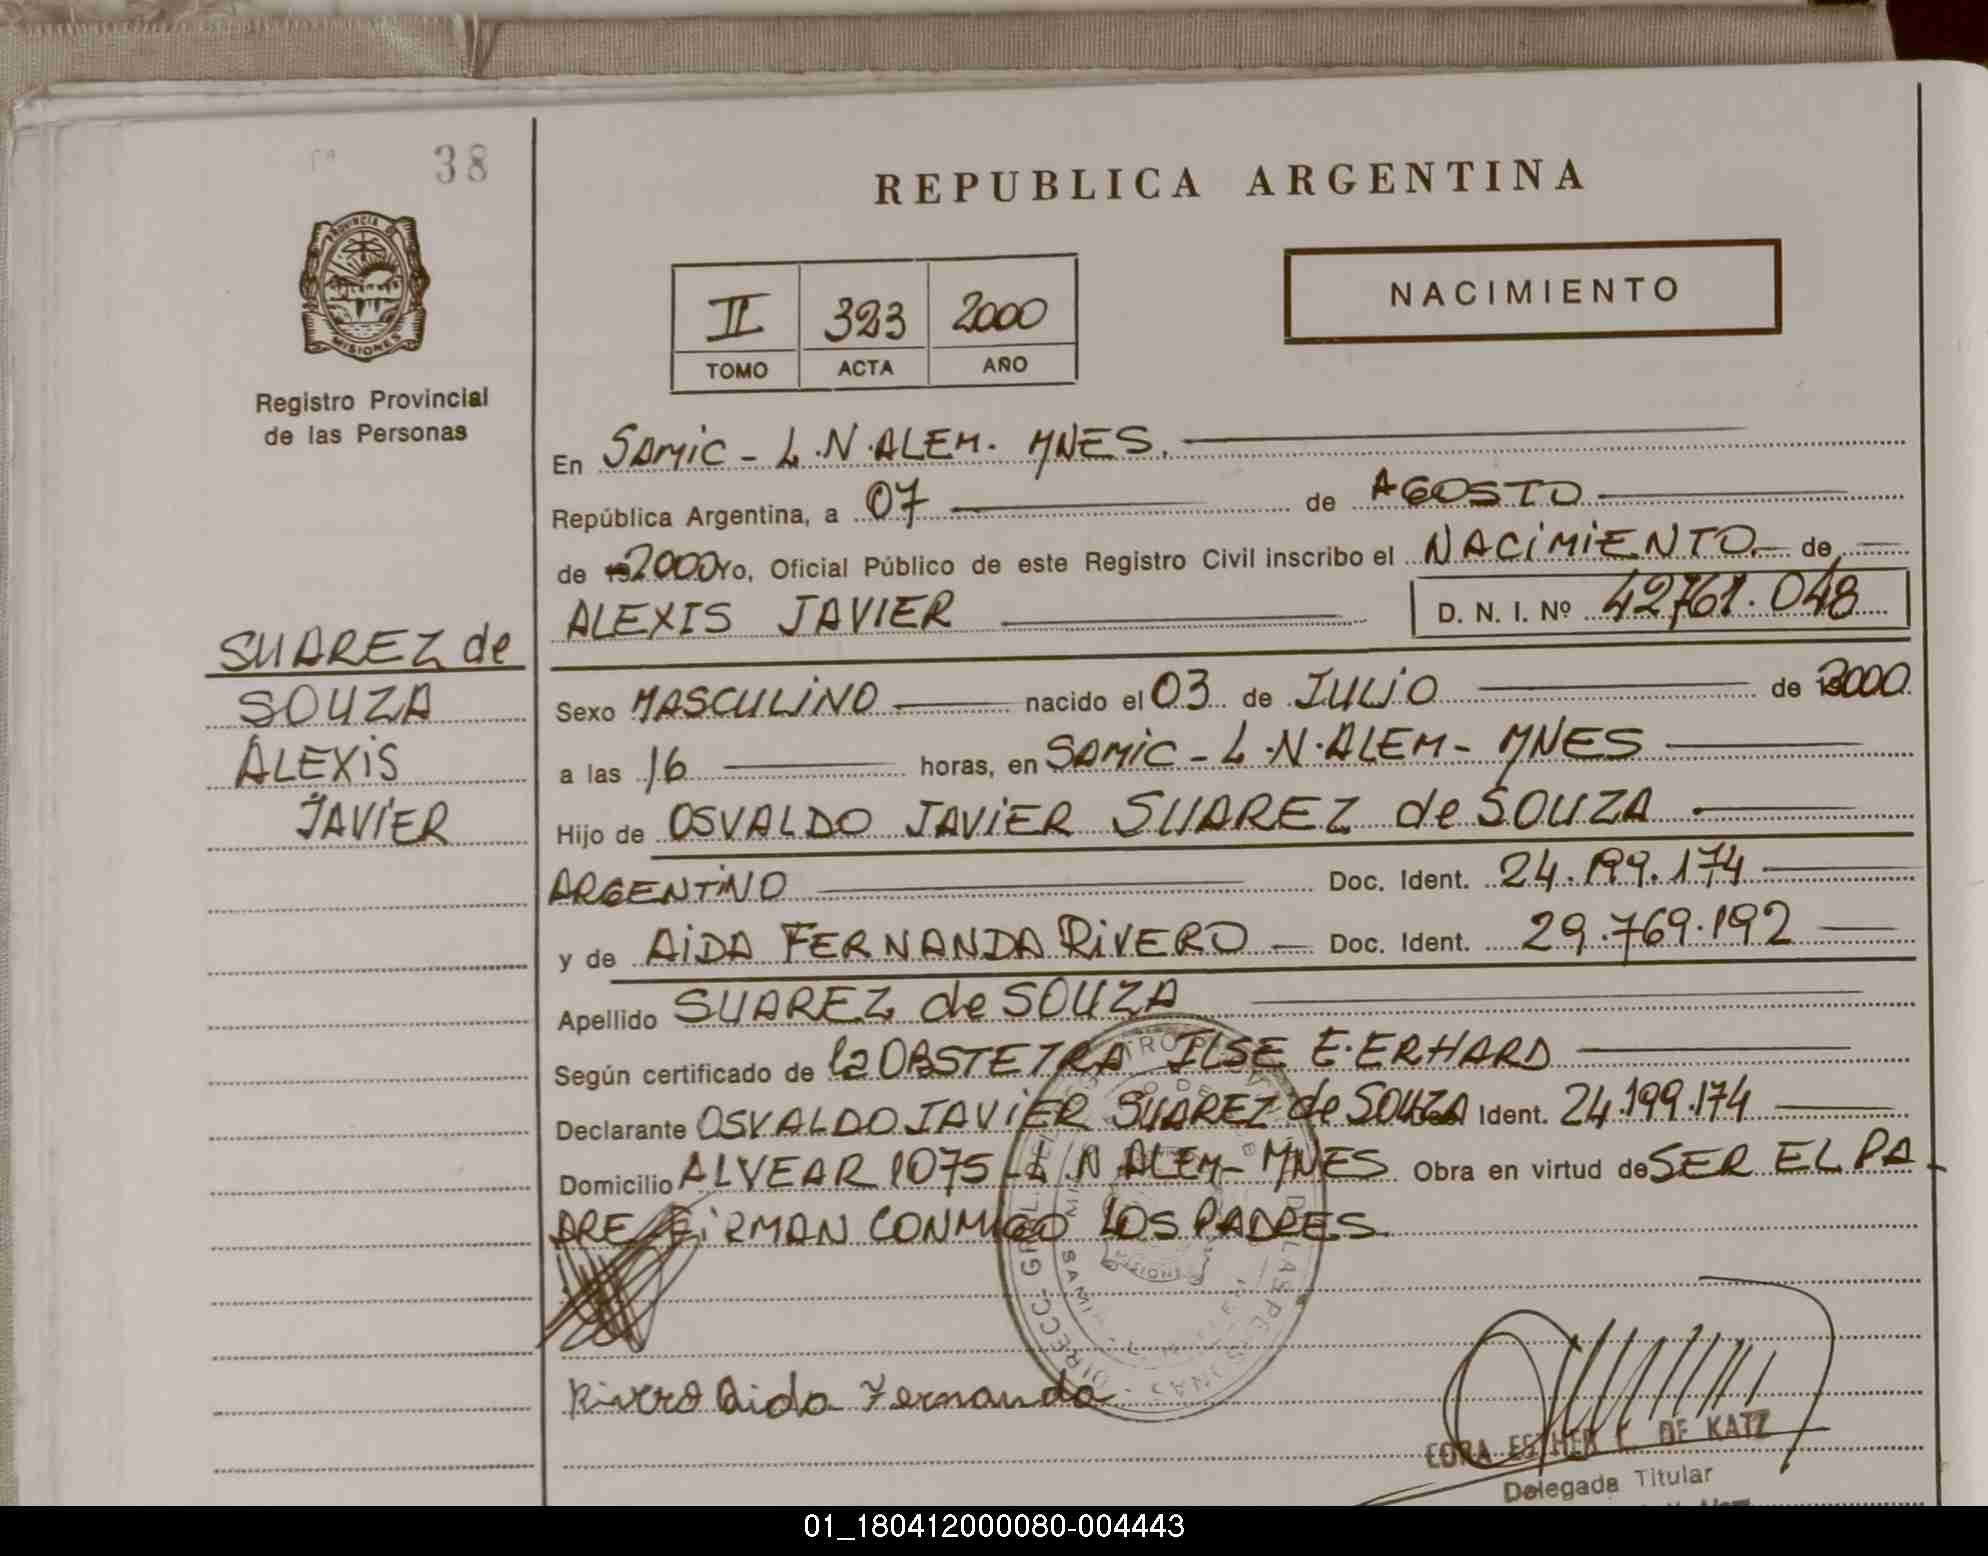 38
REPUBLICA ARGENTINA
PROVINCIA DE
MISIONES
Registro Provincial
de las Personas
NACIMIENTO
II 323 2000
TOMO ACTA AÑO
En SAMIC - L.N.ALEM. MNES.
República Argentina, a 07 de AGOSTO
de 2000 Yo, Oficial Público de este Registro Civil inscribo el NACIMIENTO de
ALEXIS JAVIER D. N. I. Nº 42761.048
SUAREZ de
SOUZA
ALEXIS
JAVIER
Sexo MASCULINO nacido el 03 de JULIO de 2000
a las 16 horas, en SAMIC - L.N.ALEM - MNES
Hijo de OSVALDO JAVIER SUAREZ de SOUZA
ARGENTINO Doc. Ident. 24.199.174
y de AIDA FERNANDA RIVERO Doc. Ident. 29.769.192
Apellido SUAREZ de SOUZA
Según certificado de la OBSTETRA ILSE E. ERHARD
Declarante OSVALDO JAVIER SUAREZ de SOUZA Ident. 24.199.174
Domicilio ALVEAR 1075 - L N ALEM - MNES Obra en virtud de SER EL PA
DRE FIRMAN CONMIGO LOS PADRES.
Rivero Aida Fernanda
ESTHER C. DE KATZ
Delegada Titular
01_180412000080-004443